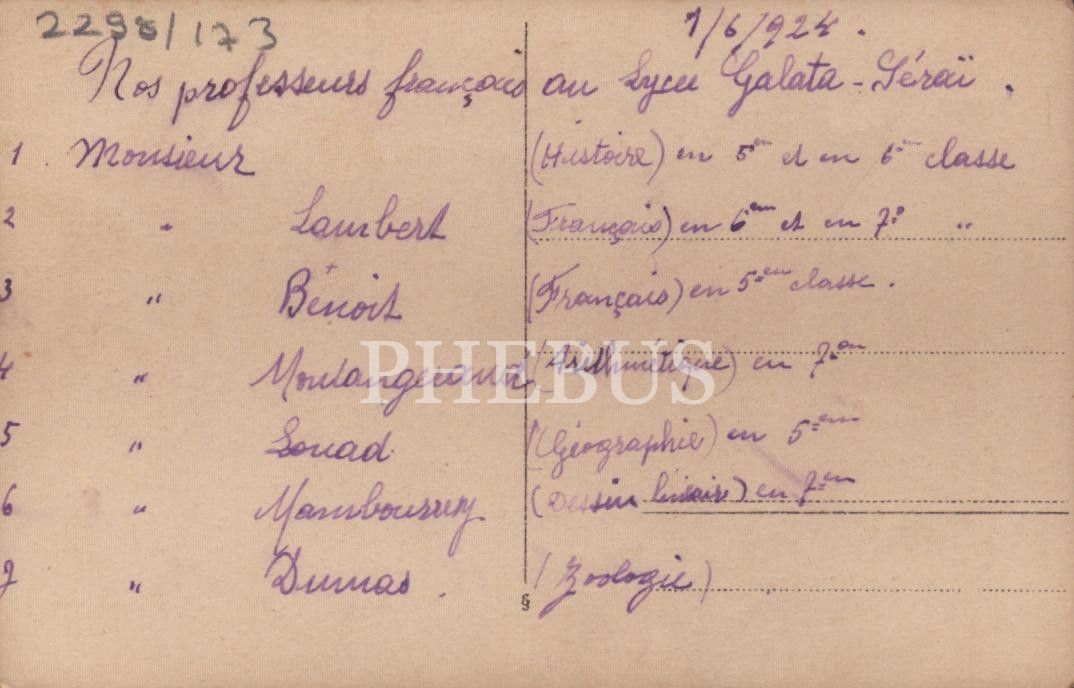 2298/173
1/6/924.
Nos professeurs français au Lycee Galata-Séraï.
1. Monsieur (Histoire) en 5em et en 6em classe
2 " Lambert (Français) en 6em et en 7e "
3 " Bénoit (Français) en 5em classe.
4 " (Arithmetique) en 7em
5 " Louad (Géographie) en 5em
6 " Mamboursey (Dessin linéaire) en 7em
7 " Dumas. (Zoologie)
PHEBUS